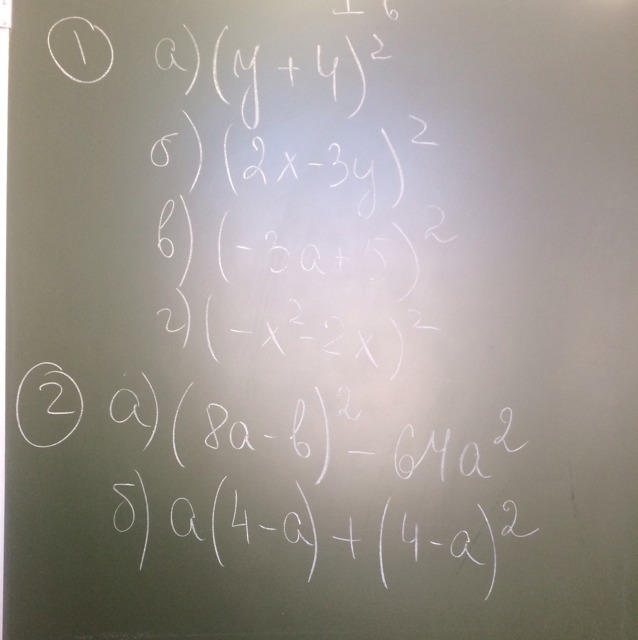 ① а) (y + 4)²
б) (2x - 3y)²
в) (-3a + 5)²
г) (-x² - 2x)²
② а) (8a - b)² - 64a²
б) a(4 - a) + (4 - a)²